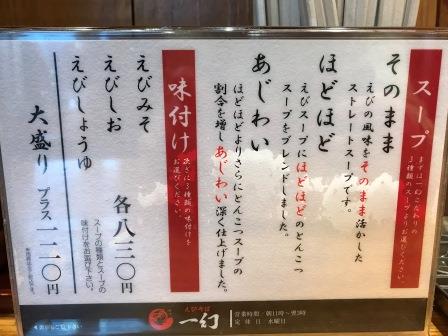 スープ
まずは一幻こだわりの
3種類のスープよりお選びください。
そのまま
えびの風味をそのまま活かした
ストレートスープです。
ほどほど
えびスープにほどほどのとんこつ
スープをブレンドしました。
あじわい
ほどほどよりさらにとんこつスープの
割合を増しあじわい深く仕上げました。
味付け
次に3種類の味付けを
お選びください。
えびみそ
えびしお
えびしょうゆ
各八三〇円
スープの種類とスープの
味付けをお選び下さい。
大盛り プラス 一一〇円
えびそば
一幻
営業時間 朝11時~翌3時
定休日 水曜日